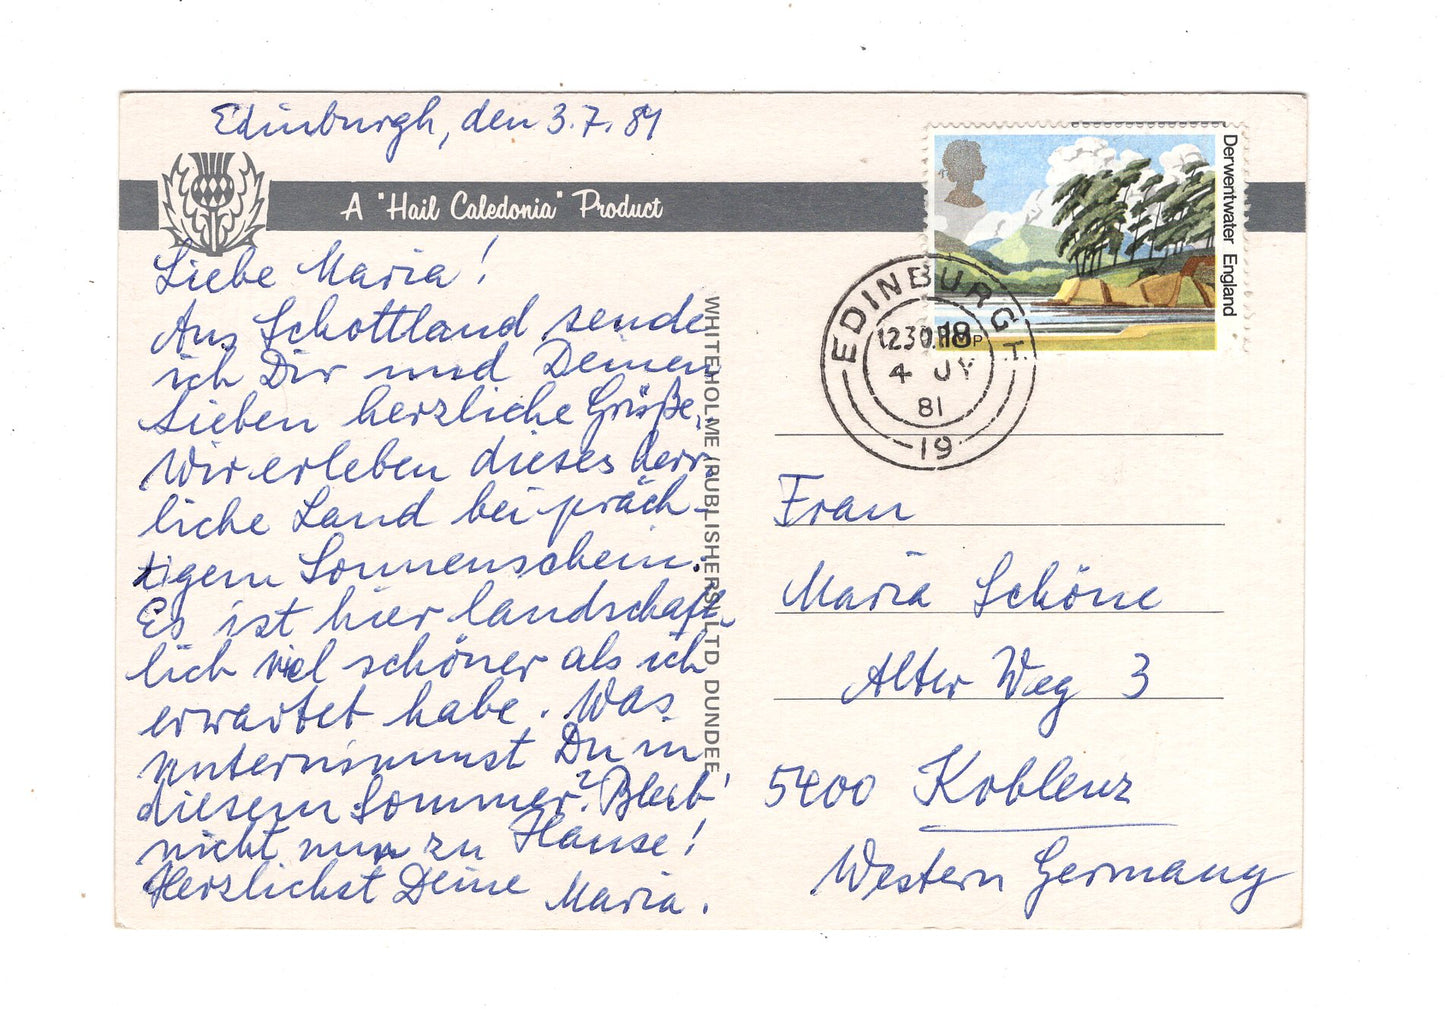 Edinburgh, den 3.7.81
A "Hail Caledonia" Product
Liebe Maria!
Aus Schottland sende
ich Dir und Deinen
Lieben herzliche Grüße.
Wir erleben dieses herr-
liche Land bei präch-
tigem Sonnenschein.
Es ist hier landschaft-
lich viel schöner als ich
erwartet habe. Was
unternimmst Du in
diesem Sommer? Bleib'
nicht nur zu Hause!
Herzlichst Deine Maria.
WHITEHOLME (PUBLISHERS) LTD. DUNDEE
Derwentwater England
18P
EDINBURGH
12 30 PM
4 JY
81
19
Frau
Maria Schöne
Alter Weg 3
5400 Koblenz
Western Germany